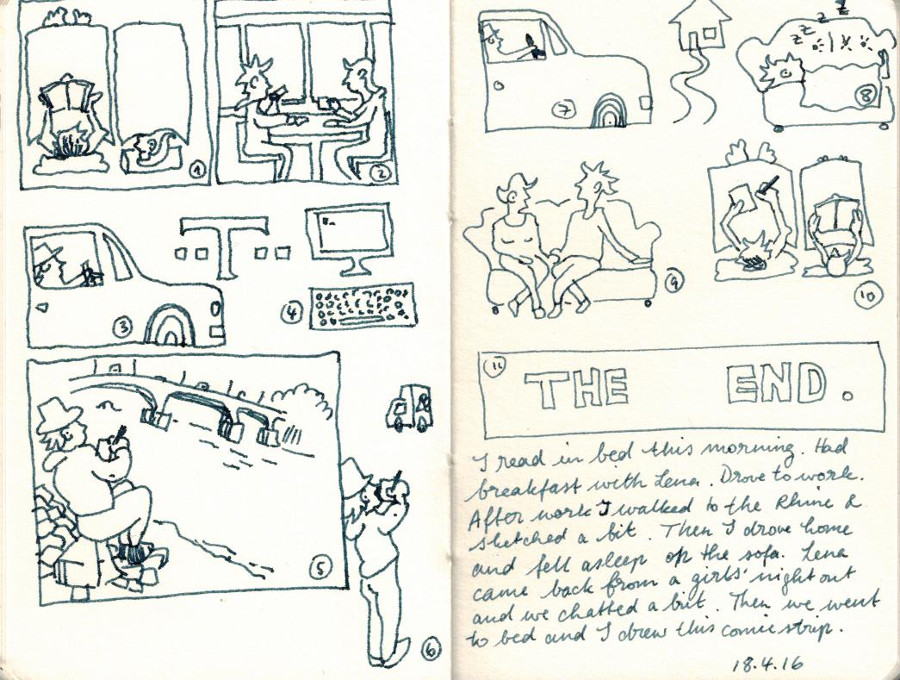 1
2
3
T
4
5
6
7
z z z z z
8
9
10
11
THE END.
I read in bed this morning. Had
breakfast with Lena. Drove to work.
After work I walked to the Rhine &
sketched a bit. Then I drove home
and fell asleep on the sofa. Lena
came back from a girls' night out
and we chatted a bit. Then we went
to bed and I drew this comic strip.
18.4.16